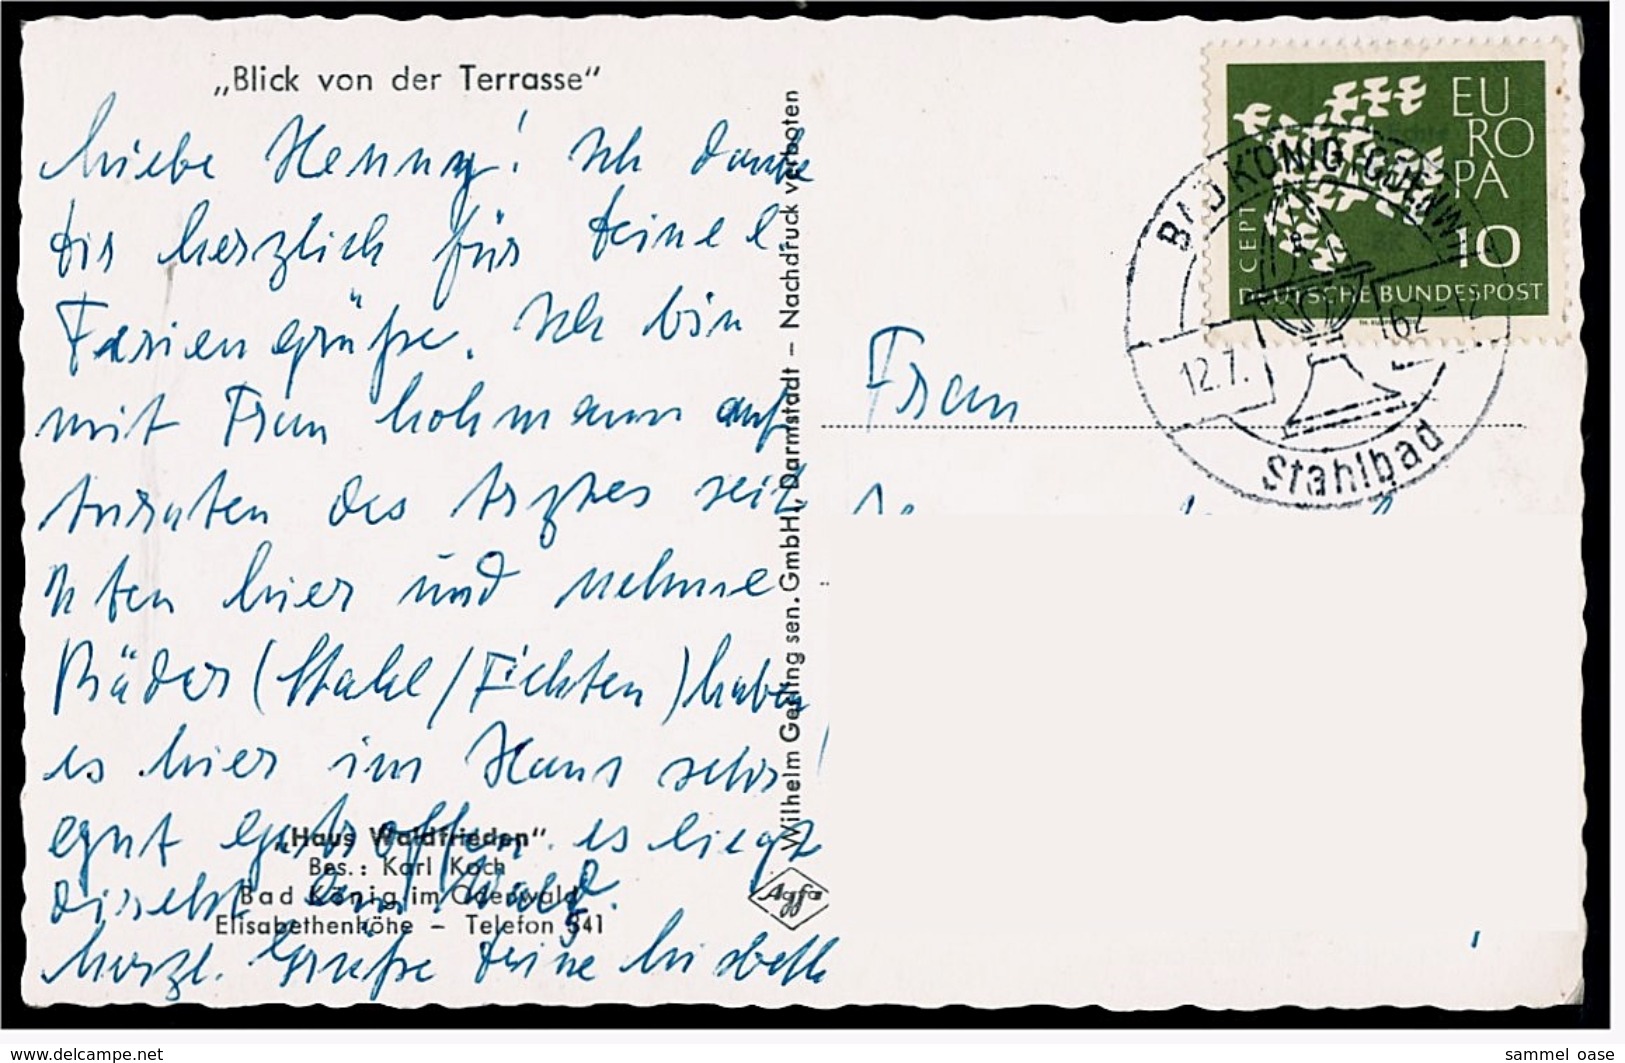 „Blick von der Terrasse“
Liebe Henny! Ich danke
Dir herzlich für Deine l
Feriengrüße. Ich bin
mit Frau Lohmann auf
Anraten des Arztes seit
hier und nehme
Bäder (Stahl/Fichten) haben
es hier im Haus sehr
gut getroffen. es liegt
Direkt am Wald.
Herzl. Grüße Deine Lisbeth
„Haus Waldfrieden“
Bes.: Karl Koch
Bad König im Odenwald
Elisabethenhöhe – Telefon 341
Wilhelm Gerling sen. GmbH, Darmstadt – Nachdruck verboten
Agfa
Frau
EUROPA
CEPT
10
DEUTSCHE BUNDESPOST
BAD KÖNIG (ODENW)
12.7.62-12
Stahlbad
www.delcampe.net
sammel_oase